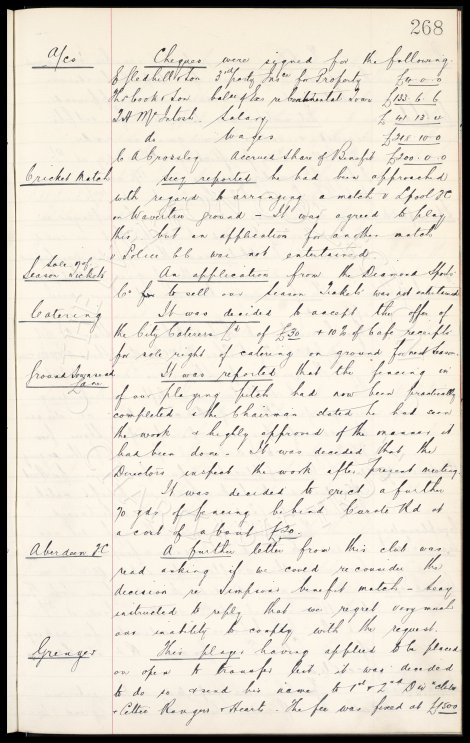 268
A/cs Cheques were signed for the following.
E Gledhill & Son 3rd Party Insce for Property £4-0-0
Thos Cook & Son Bal of Exs re Continental Tour £133-6-6
T. H. McIntosh. Salary £41-13-0
do Wages £318-10-0
C A Crossley Accrued Share of Benefit £200-0-0
Cricket Match Secy reported he had been approached
with regard to arranging a match v L'pool FC
on Wavertree ground - It was agreed to play
this, but an application for another match
v Police CC was not entertained.
Sale of Season Tickets An application from the Diamond Sports
Co to sell our Season Tickets was not entertained
Catering It was decided to accept the offer of
the City Caterers Ld of £30 + 10% of Cafe receipts
for sole right of catering on ground for next season.
Ground Lane It was reported that the fencing in
of our playing pitch had now been practically
completed & the Chairman stated he had seen
the work & highly approved of the manner it
had been done. It was decided that the
Directors inspect the work after present meeting.
It was decided to erect a further
70 yds of fencing behind Goodison Rd at
a cost of about £20.
Aberdeen FC A further letter from this club was
read asking if we could reconsider the
decision re Simpsons benefit match - Secy
instructed to reply that we regret very much
our inability to comply with the request.
Grenyer This player having applied to be placed
on open to transfer list it was decided
to do so & send his name to 1st & 2nd Div n clubs
& Celtic Rangers & Hearts. The fee was fixed at £1500